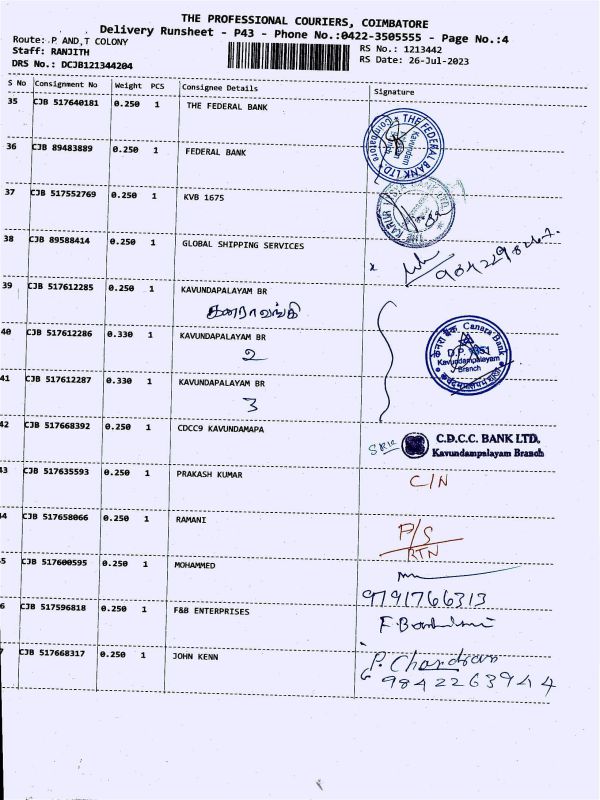 THE PROFESSIONAL COURIERS, COIMBATORE
Delivery Runsheet - P43 - Phone No.:0422-3505555 - Page No.:4
Route: P AND,T COLONY
Staff: RANJITH
DRS No.: DCJB121344204
RS No.: 1213442
RS Date: 26-Jul-2023
S No Consignment No Weight PCS Consignee Details Signature
35 CJB 517640181 0.250 1 THE FEDERAL BANK
THE FEDERAL BANK LTD. Coimbatore
Kavundam
36 CJB 89483889 0.250 1 FEDERAL BANK
37 CJB 517552769 0.250 1 KVB 1675
KARUR
38 CJB 89588414 0.250 1 GLOBAL SHIPPING SERVICES
x
39 CJB 517612285 0.250 1 KAVUNDAPALAYAM BR
கனராவங்கி
40 CJB 517612286 0.330 1 KAVUNDAPALAYAM BR
2
केनरा बैंक Canara Bank
D.P.
Kavundampalayam
Branch
41 CJB 517612287 0.330 1 KAVUNDAPALAYAM BR
3
42 CJB 517668392 0.250 1 CDCC9 KAVUNDAMAPA
C.D.C.C. BANK LTD.
Kavundampalayam Branch
43 CJB 517635593 0.250 1 PRAKASH KUMAR C/N
44 CJB 517658066 0.250 1 RAMANI P/S
RTN
5 CJB 517600595 0.250 1 MOHAMMED
9791766313
6 CJB 517596818 0.250 1 F&B ENTERPRISES
7 CJB 517668317 0.250 1 JOHN KENN P. Chandran
9842263944